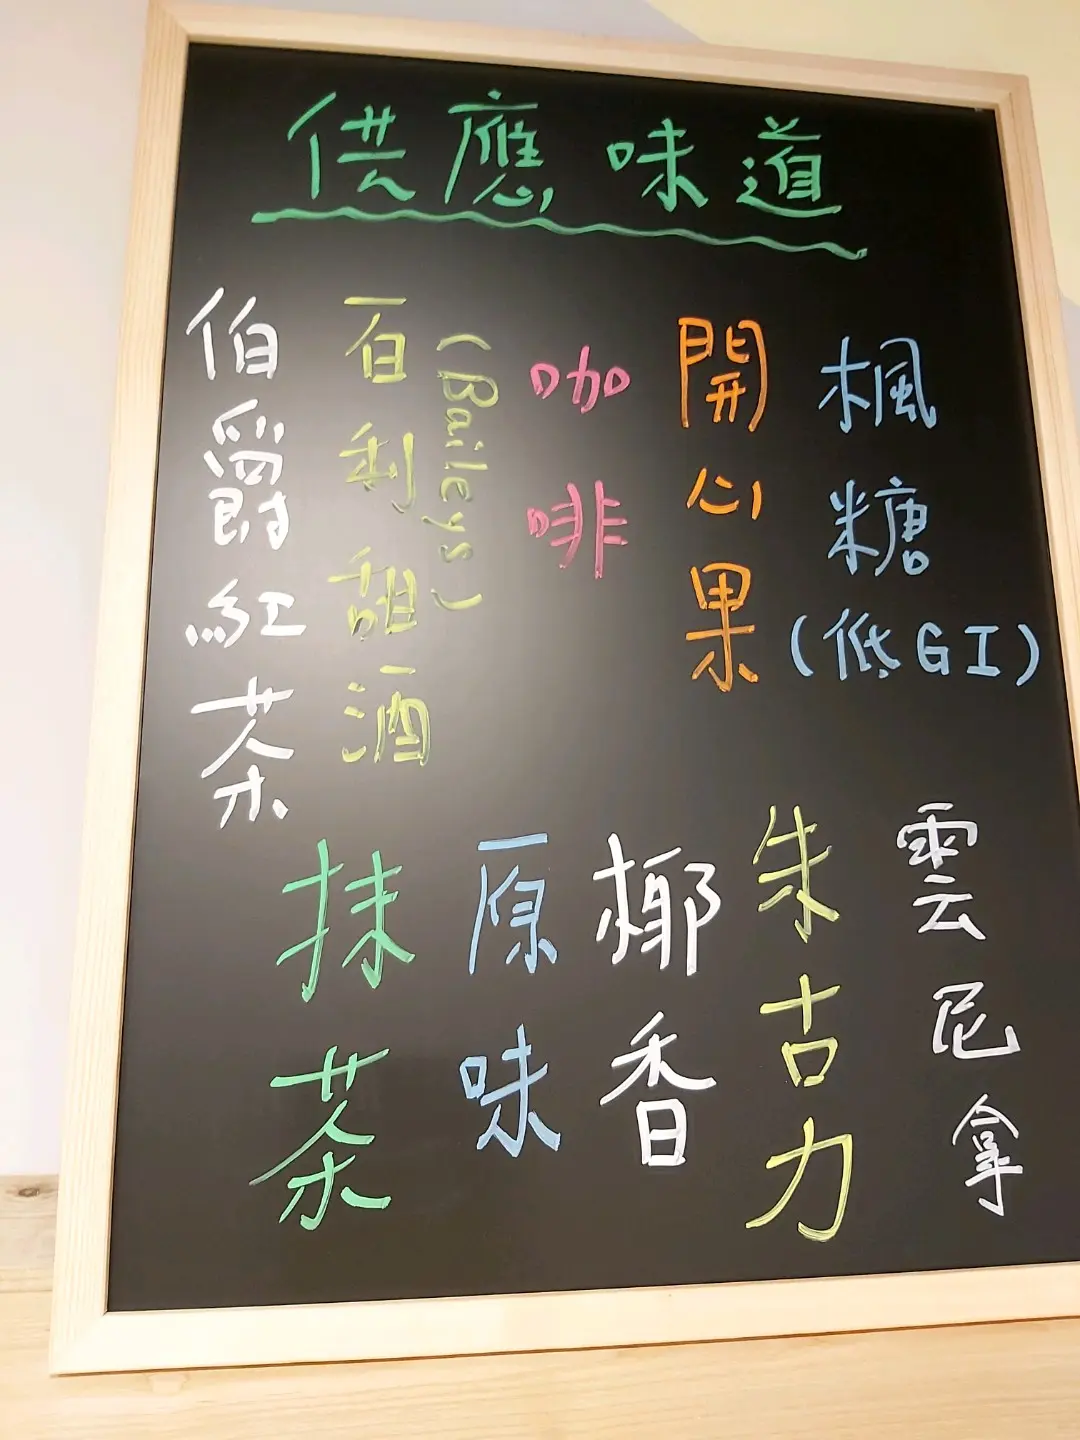 供應味道
楓糖
(低GI)
開心果
咖啡
百利甜酒
(Baileys)
伯爵紅茶
雲尼拿
朱古力
椰香
原味
抹茶